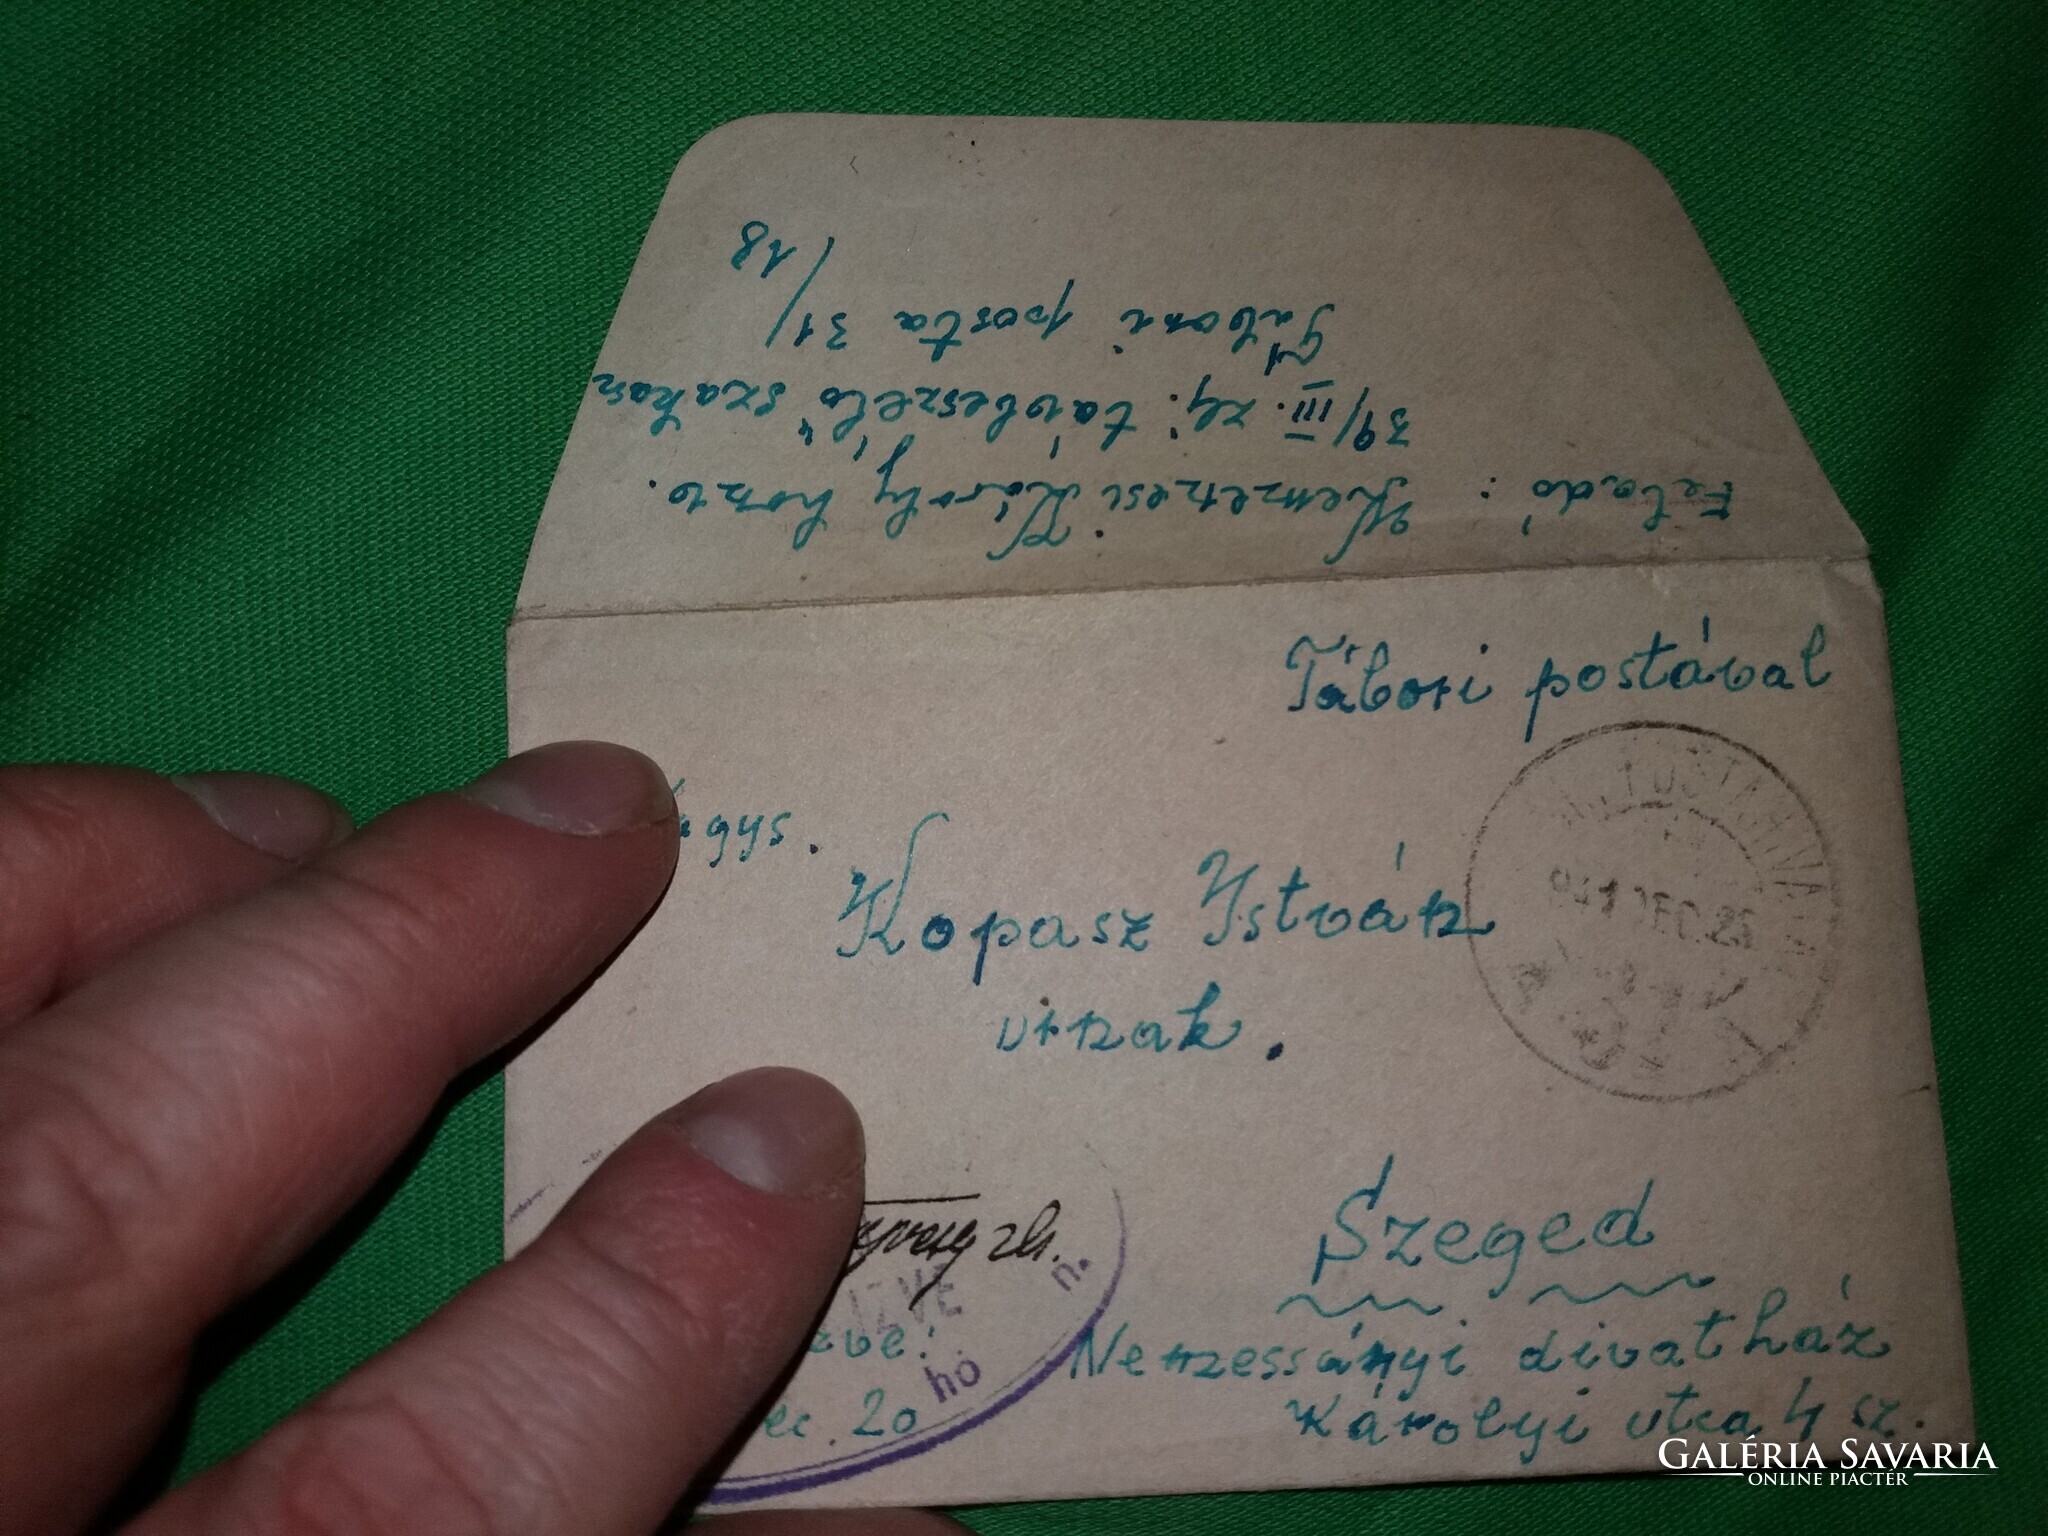 Feladó: Nemzetesi Károly honv.
39/III. zlj. távbeszélő szakasz
Tábori posta 31/
/18
Tábori postával
Kopasz István
úrnak.
Szeged
Nemzessányi divatház
Károlyi utca 4 sz.
941 DEC. 25
IZVE
hó
n.
20
GALÉRIA SAVARIA
ONLINE PIACTÉR